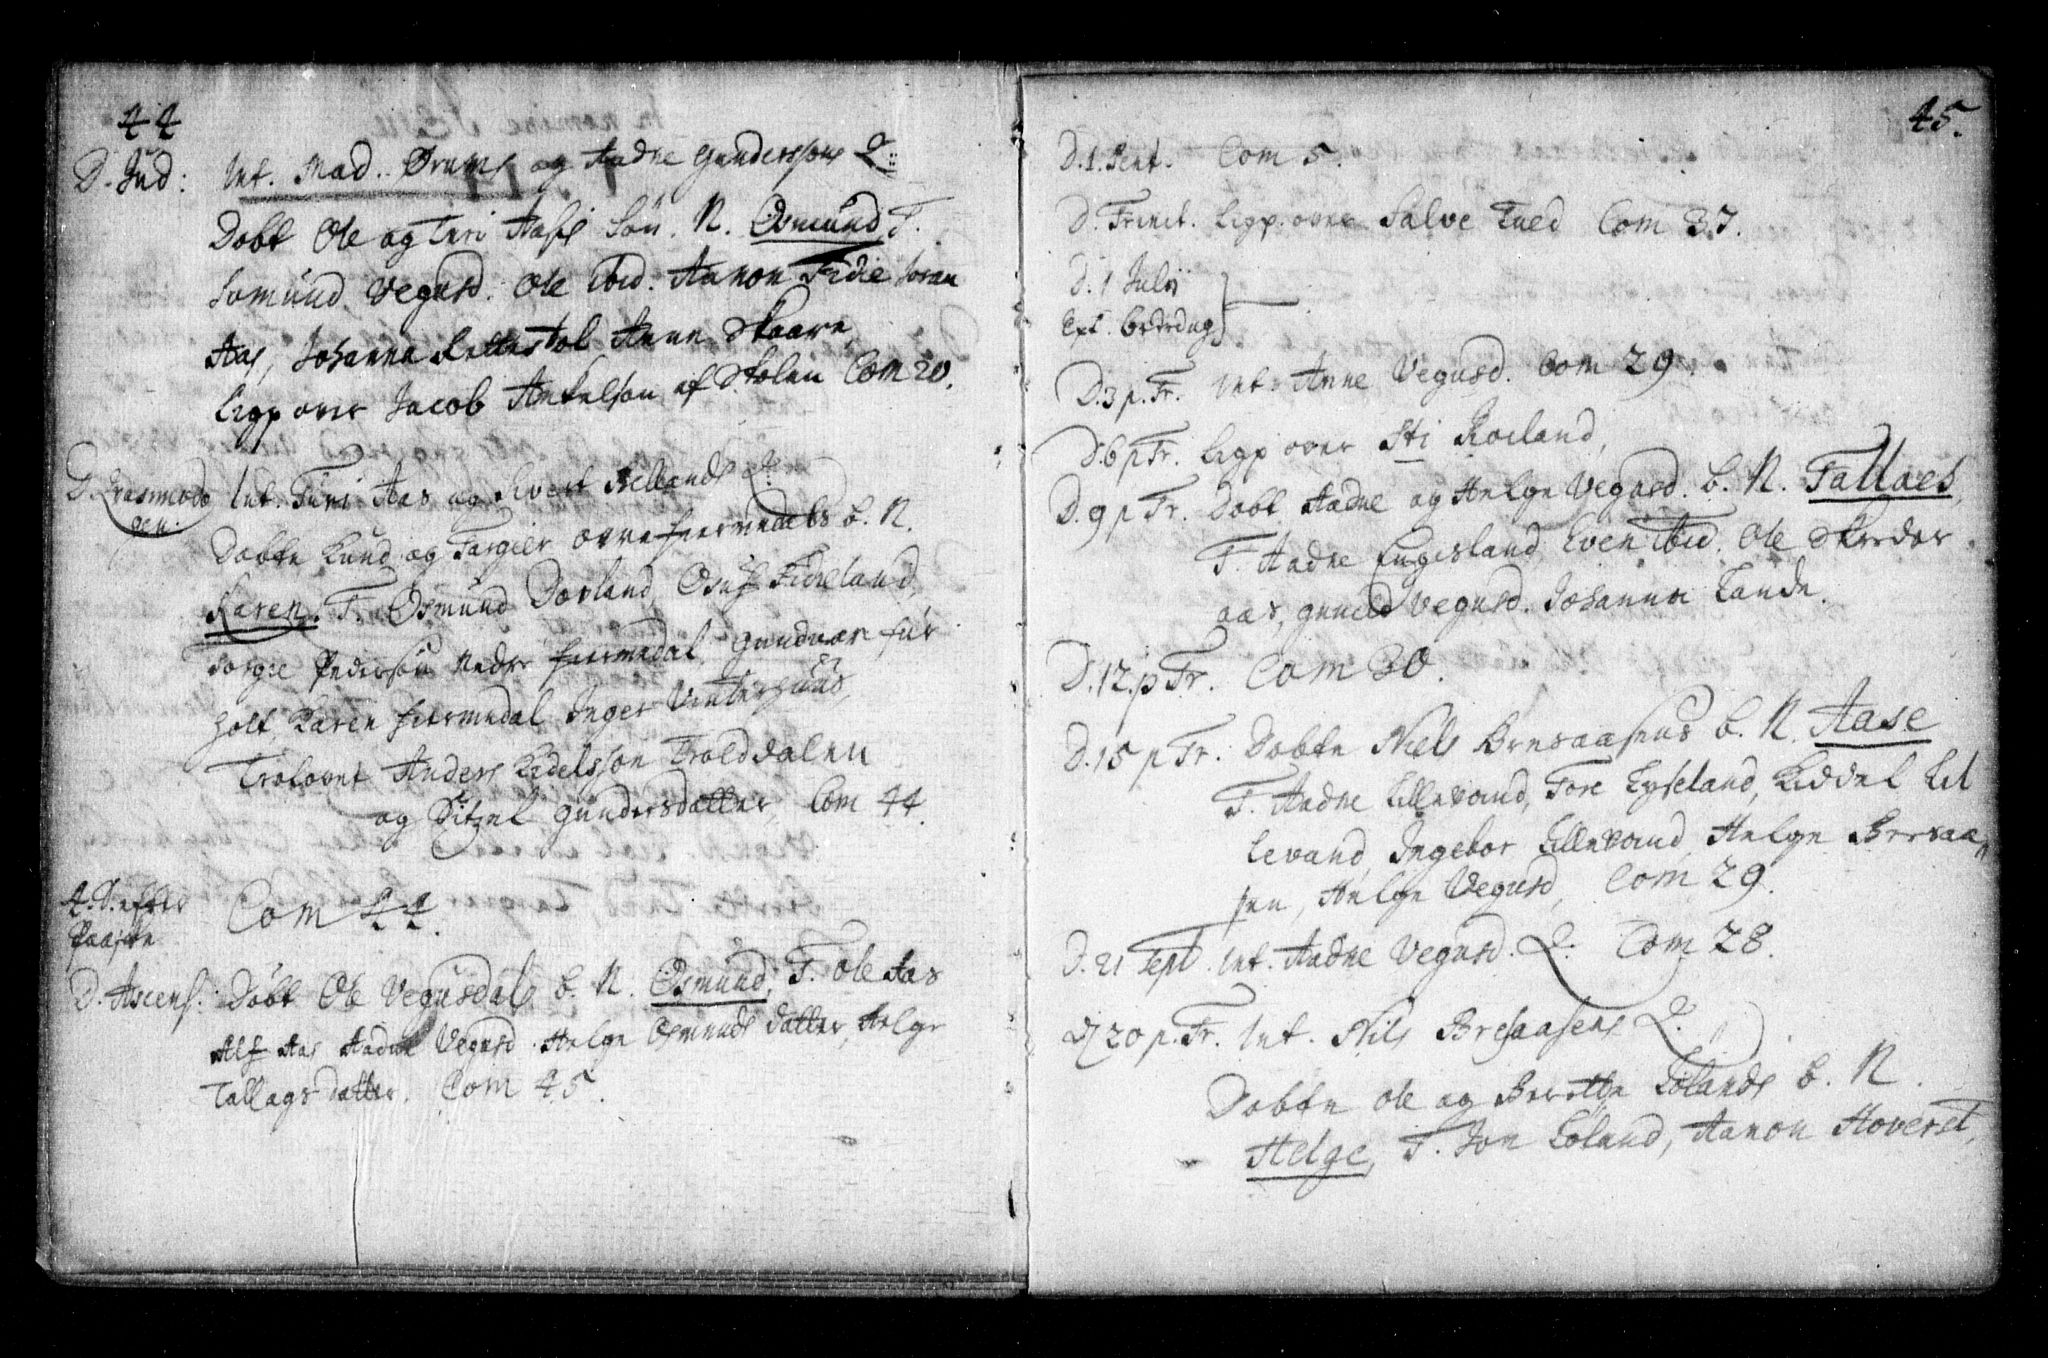 44
D. Jud: Int. Mad. Orums og Aadne Gunderssøns Q.
Dobt Ole og Turi Aases Søn. N. Osmund F.
Somund Vegusd. Ole ibid. Aanon Fidie Joran
Aas, Johanna Rettestøl Anne Skaare
Ligp over Jacob Ankelsøn af Stolen Com 20.
Int. Turi Aas og Sivert Rellands Q.
Dobte Knud og Torgier øvre fiermedals b. N.
Karen. F. Osmund Dovland, Osuf Fidieland,
Torgie Pedersøn Neder fiermedal, Gundvor fur
holt, Karen fiermedal Inger Vintershuus,
Trolovet Anders Kidelssøn Trolddalen
og Sitzel Gundersdatter, Com 44.
4. D. efter Com 44.
Paaske
D. Ascens. Dobt Ole Vegusdals b. N. Osmund, F. Ole Aas
Alf Aas Aadne Vegusd. Helge Osmunds datter, Helge
Tallags datter. Com 45.
45.
D. 1. Pent. Com 5.
D. Trinit. Ligp. over Salve Tued Com 37.
D. 1 Julij
Ext. bededag
D. 3 p. Tr. Int. Anne Vegusd. Com 29.
D. 6 p Tr. Ligp over Sti Roeland,
D. 9 p Tr. Dobt Aadne og Helge Vegusd. b. N. Tallaes,
F. Aadne Engesland Even ibid. Ole Skreder
aas, Guneld Vegusd. Johanna Lande.
D. 12. p Tr. Com 30.
D. 15 p Tr. Dobte Niels Bresaasens b. N. Aase
F. Aadne Lillevand, Tore Eyseland, Kiddel Lil
levand, Ingebor Lillevand, Helge Bresaa
sen, Helge Vegusd, Com 29.
D. 21 Sept. Int. Aadne Vegusd. Q. Com 28.
D 20 p. Tr. Int. Nils Bresaasens Q.
Dobte Ole og Beritte Lølands b. N.
Helge, F. Jon Løland, Aanon Hoverst,